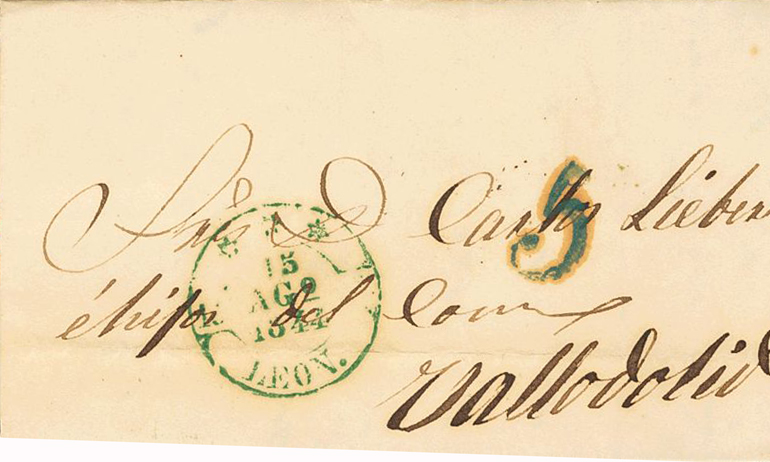 Carlos Lieben
é hijos del Com
Valladolid
15
AGO
1844
LEON.
5